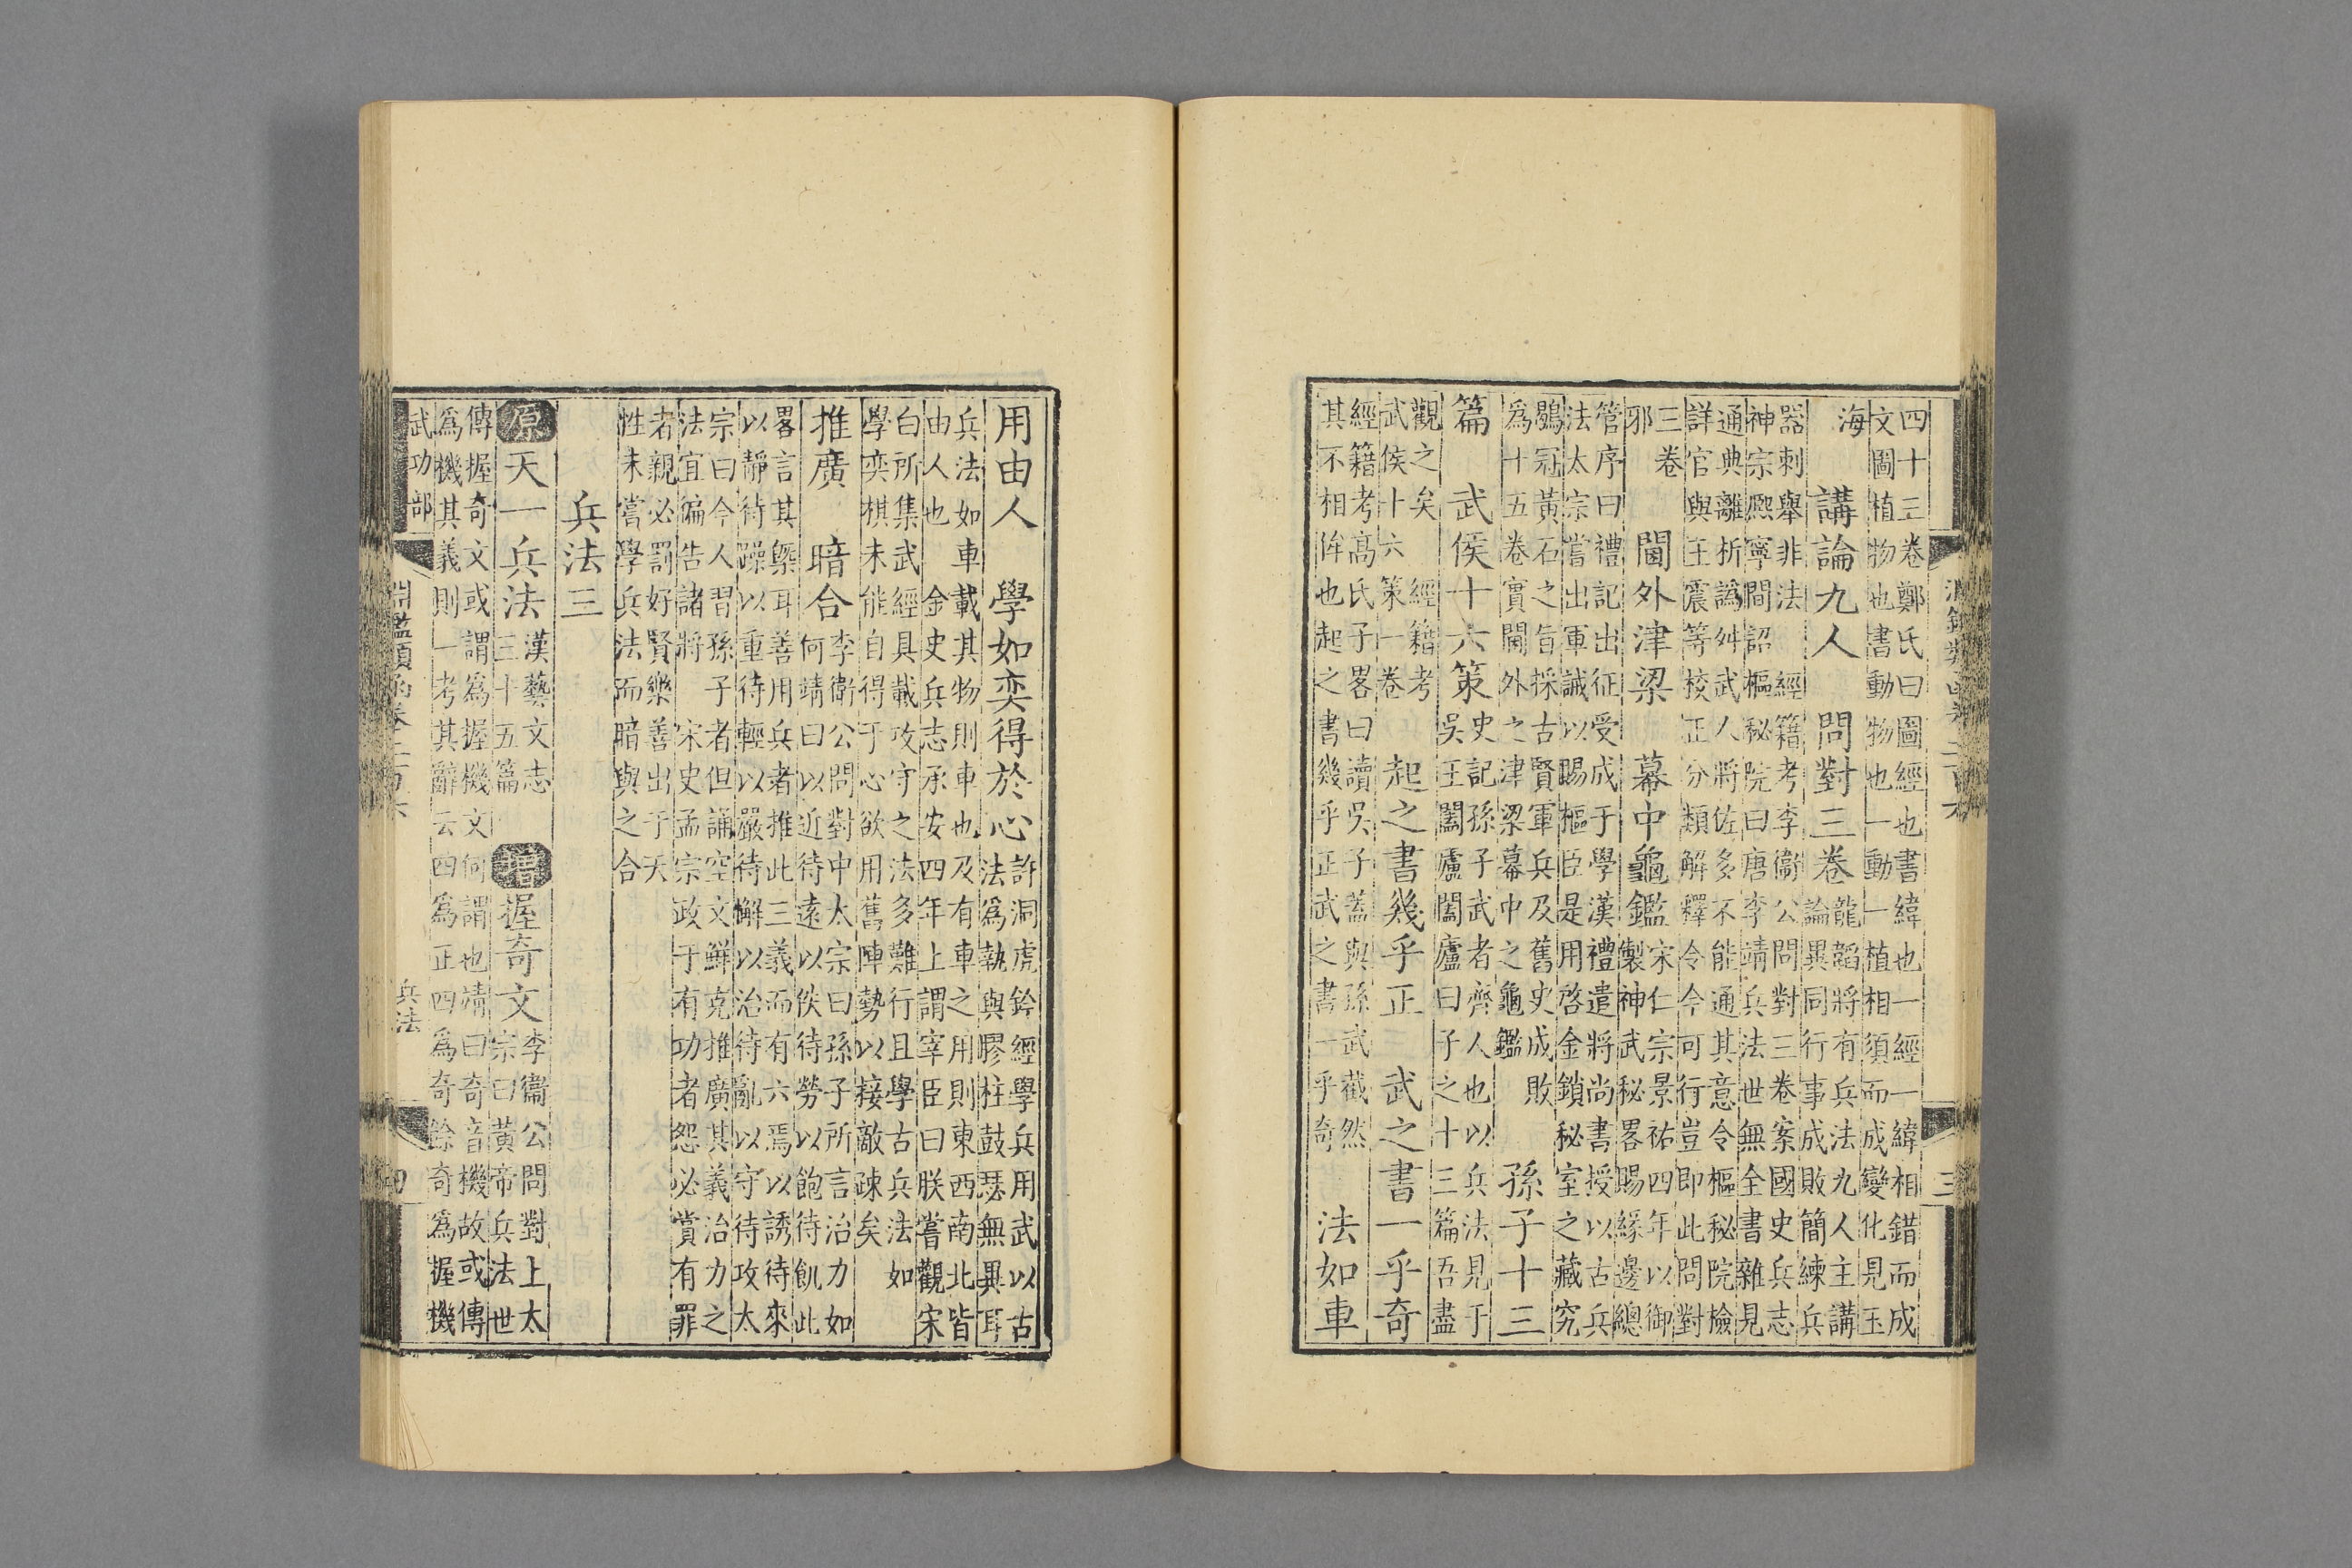 淵鑑類函卷二百六 三
四十三卷鄭氏曰圖經也書緯也一經一緯相錯而成
文圖植物也書動物也一動一植相須而成變化見玉
海 講論九人 問對三卷 龍韜將有兵法九人主講
論異同行事成敗簡練兵
器刺舉非法 經籍考李衞公問對三卷案國史兵志
神宗熈寧間詔樞秘院曰唐李靖兵法世無全書雜見
通典離析譌舛武人將佐多不能通其意令樞秘院檢
詳官與王震等校正分類解釋令今可行豈即此問對
三卷
邪 閫外津梁 幕中龜鑑 宋仁宗景祐四年以御
製神武秘畧賜緣邊總
管序曰禮記出征受成于學漢禮遣將尚書授以古兵
法太宗嘗出軍誡以賜樞臣是用啓金鎖秘室之藏究
鶡冠黃石之旨採古賢軍兵及舊史成敗
爲十五卷實閫外之津梁幕中之龜鑑 孫子十三
篇 武侯十六策 史記孫子武者齊人也以兵法見于
吳王闔廬闔廬曰子之十三篇吾盡
觀之矣 經籍考
武侯十六策一卷 起之書幾乎正 武之書一乎奇
經籍考高氏子畧曰讀吳子蓋與孫武截然
其不相侔也起之書幾乎正武之書一乎奇 法如車
用由人 學如奕得於心 許洞虎鈐經學兵用武以古
法爲執與膠柱鼓瑟無異耳
兵法如車載其物則車也及有車之用則東西南北皆
由人也 金史兵志承安四年上謂宰臣曰朕嘗觀宋
白所集武經具載攻守之法多難行且學古兵法如
學奕棋未能自得于心欲用舊陣勢以接敵疎矣
推廣 暗合 李衞公問對中太宗曰孫子所言治力如
何靖曰以近待遠以佚待勞以飽待飢此
畧言其槩耳善用兵者推此三義而有六焉以誘待來
以靜待躁以重待輕以嚴待懈以治待亂以守待攻太
宗曰今人習孫子者但誦空文鮮克推廣其義治力之
法宜徧告諸將 宋史孟宗政于有功者怨必賞有罪
者親必罰好賢樂善出于天
性未嘗學兵法而暗與之合
兵法三
原天一兵法 漢藝文志
三十五篇 增握奇文 李衞公問對上太
宗曰黃帝兵法世
傳握奇文或謂爲握機文何謂也靖曰奇音機故或傳
爲機其義則一考其辭云四爲正四爲奇餘奇爲握機
武功部 淵鑑類函卷二百六 兵法 四